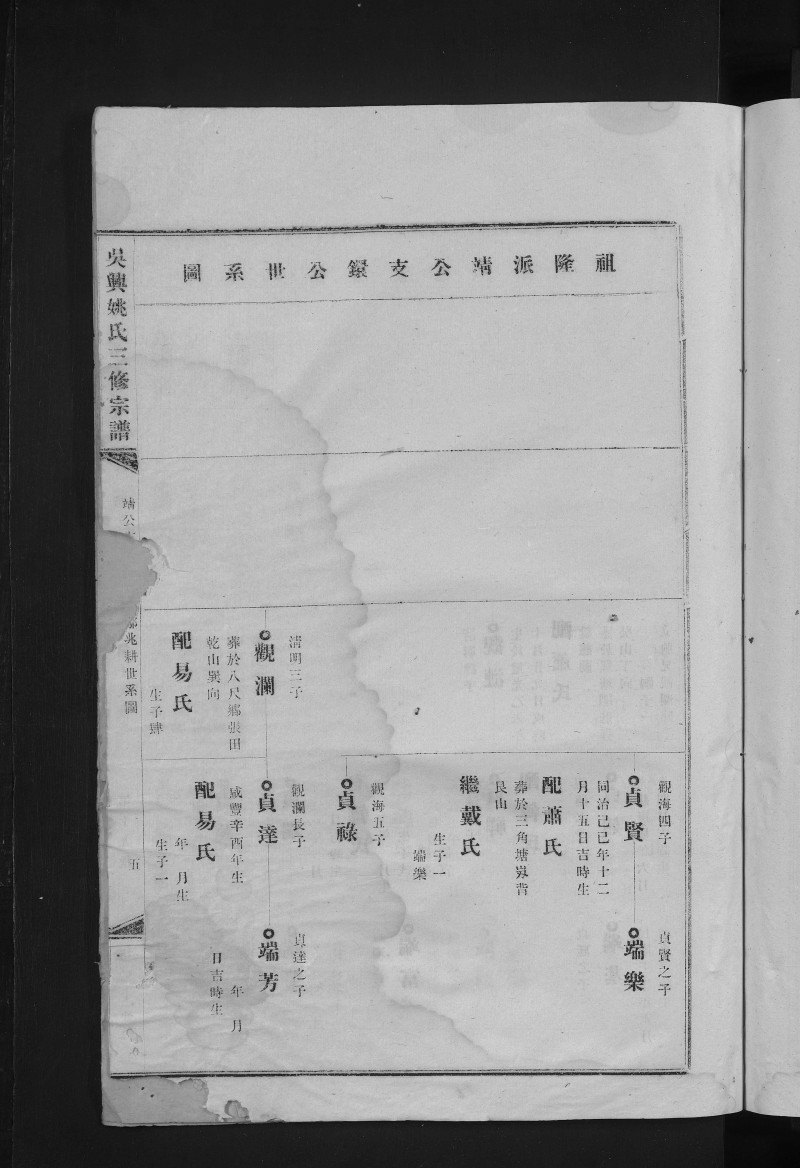 祖隆派靖公支鐌公世系圖
觀海四子
貞賢
同治己巳年十二
月十五日吉時生
配蕭氏
葬於三角塘嵬背
艮山
繼戴氏
生子一
端樂
貞賢之子
端樂
觀海五子
貞祿
清明三子
觀瀾
葬於八尺鄉張田
乾山巽向
配易氏
生子肆
觀瀾長子
貞達
咸豐辛酉年生
配易氏
年 月生
生子一
貞達之子
端芳
年 月
日吉時生
吳興姚氏三修宗譜
靖公
兆耕世系圖
五